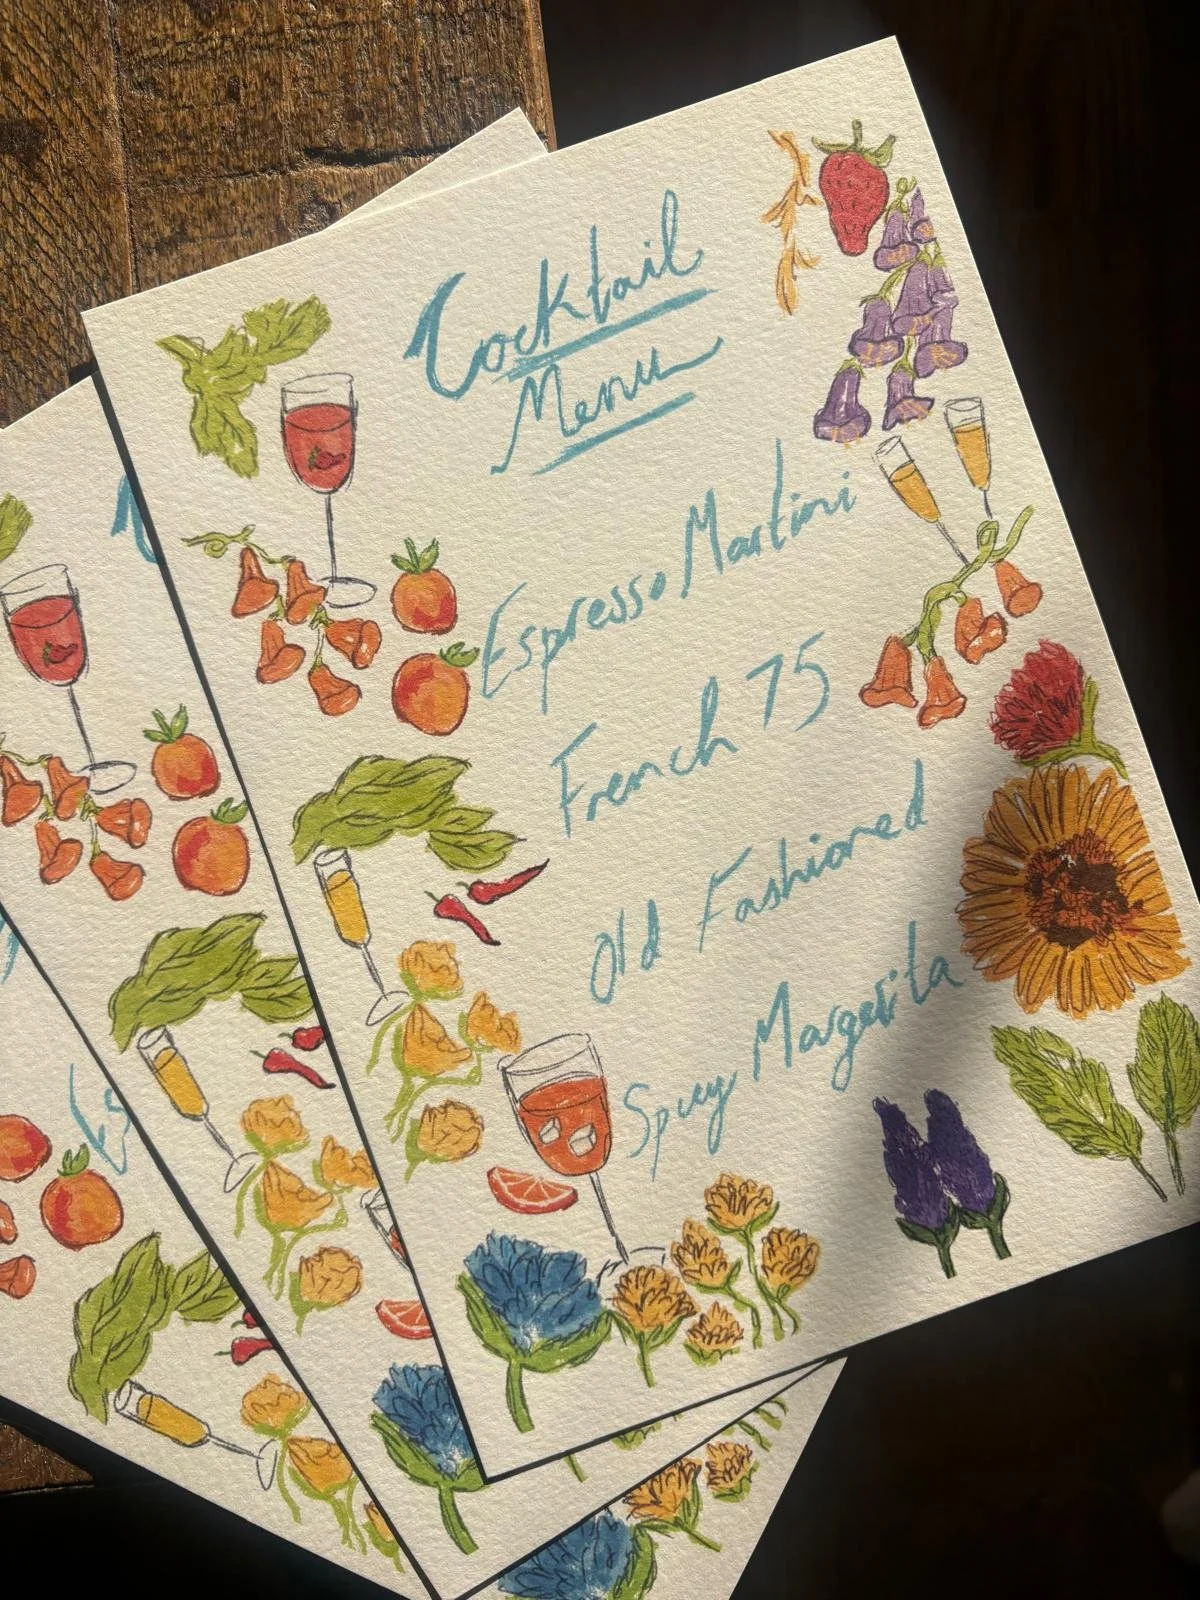 Cocktail
Menu
Espresso Martini
French 75
Old Fashioned
Spicy Margerita
Es